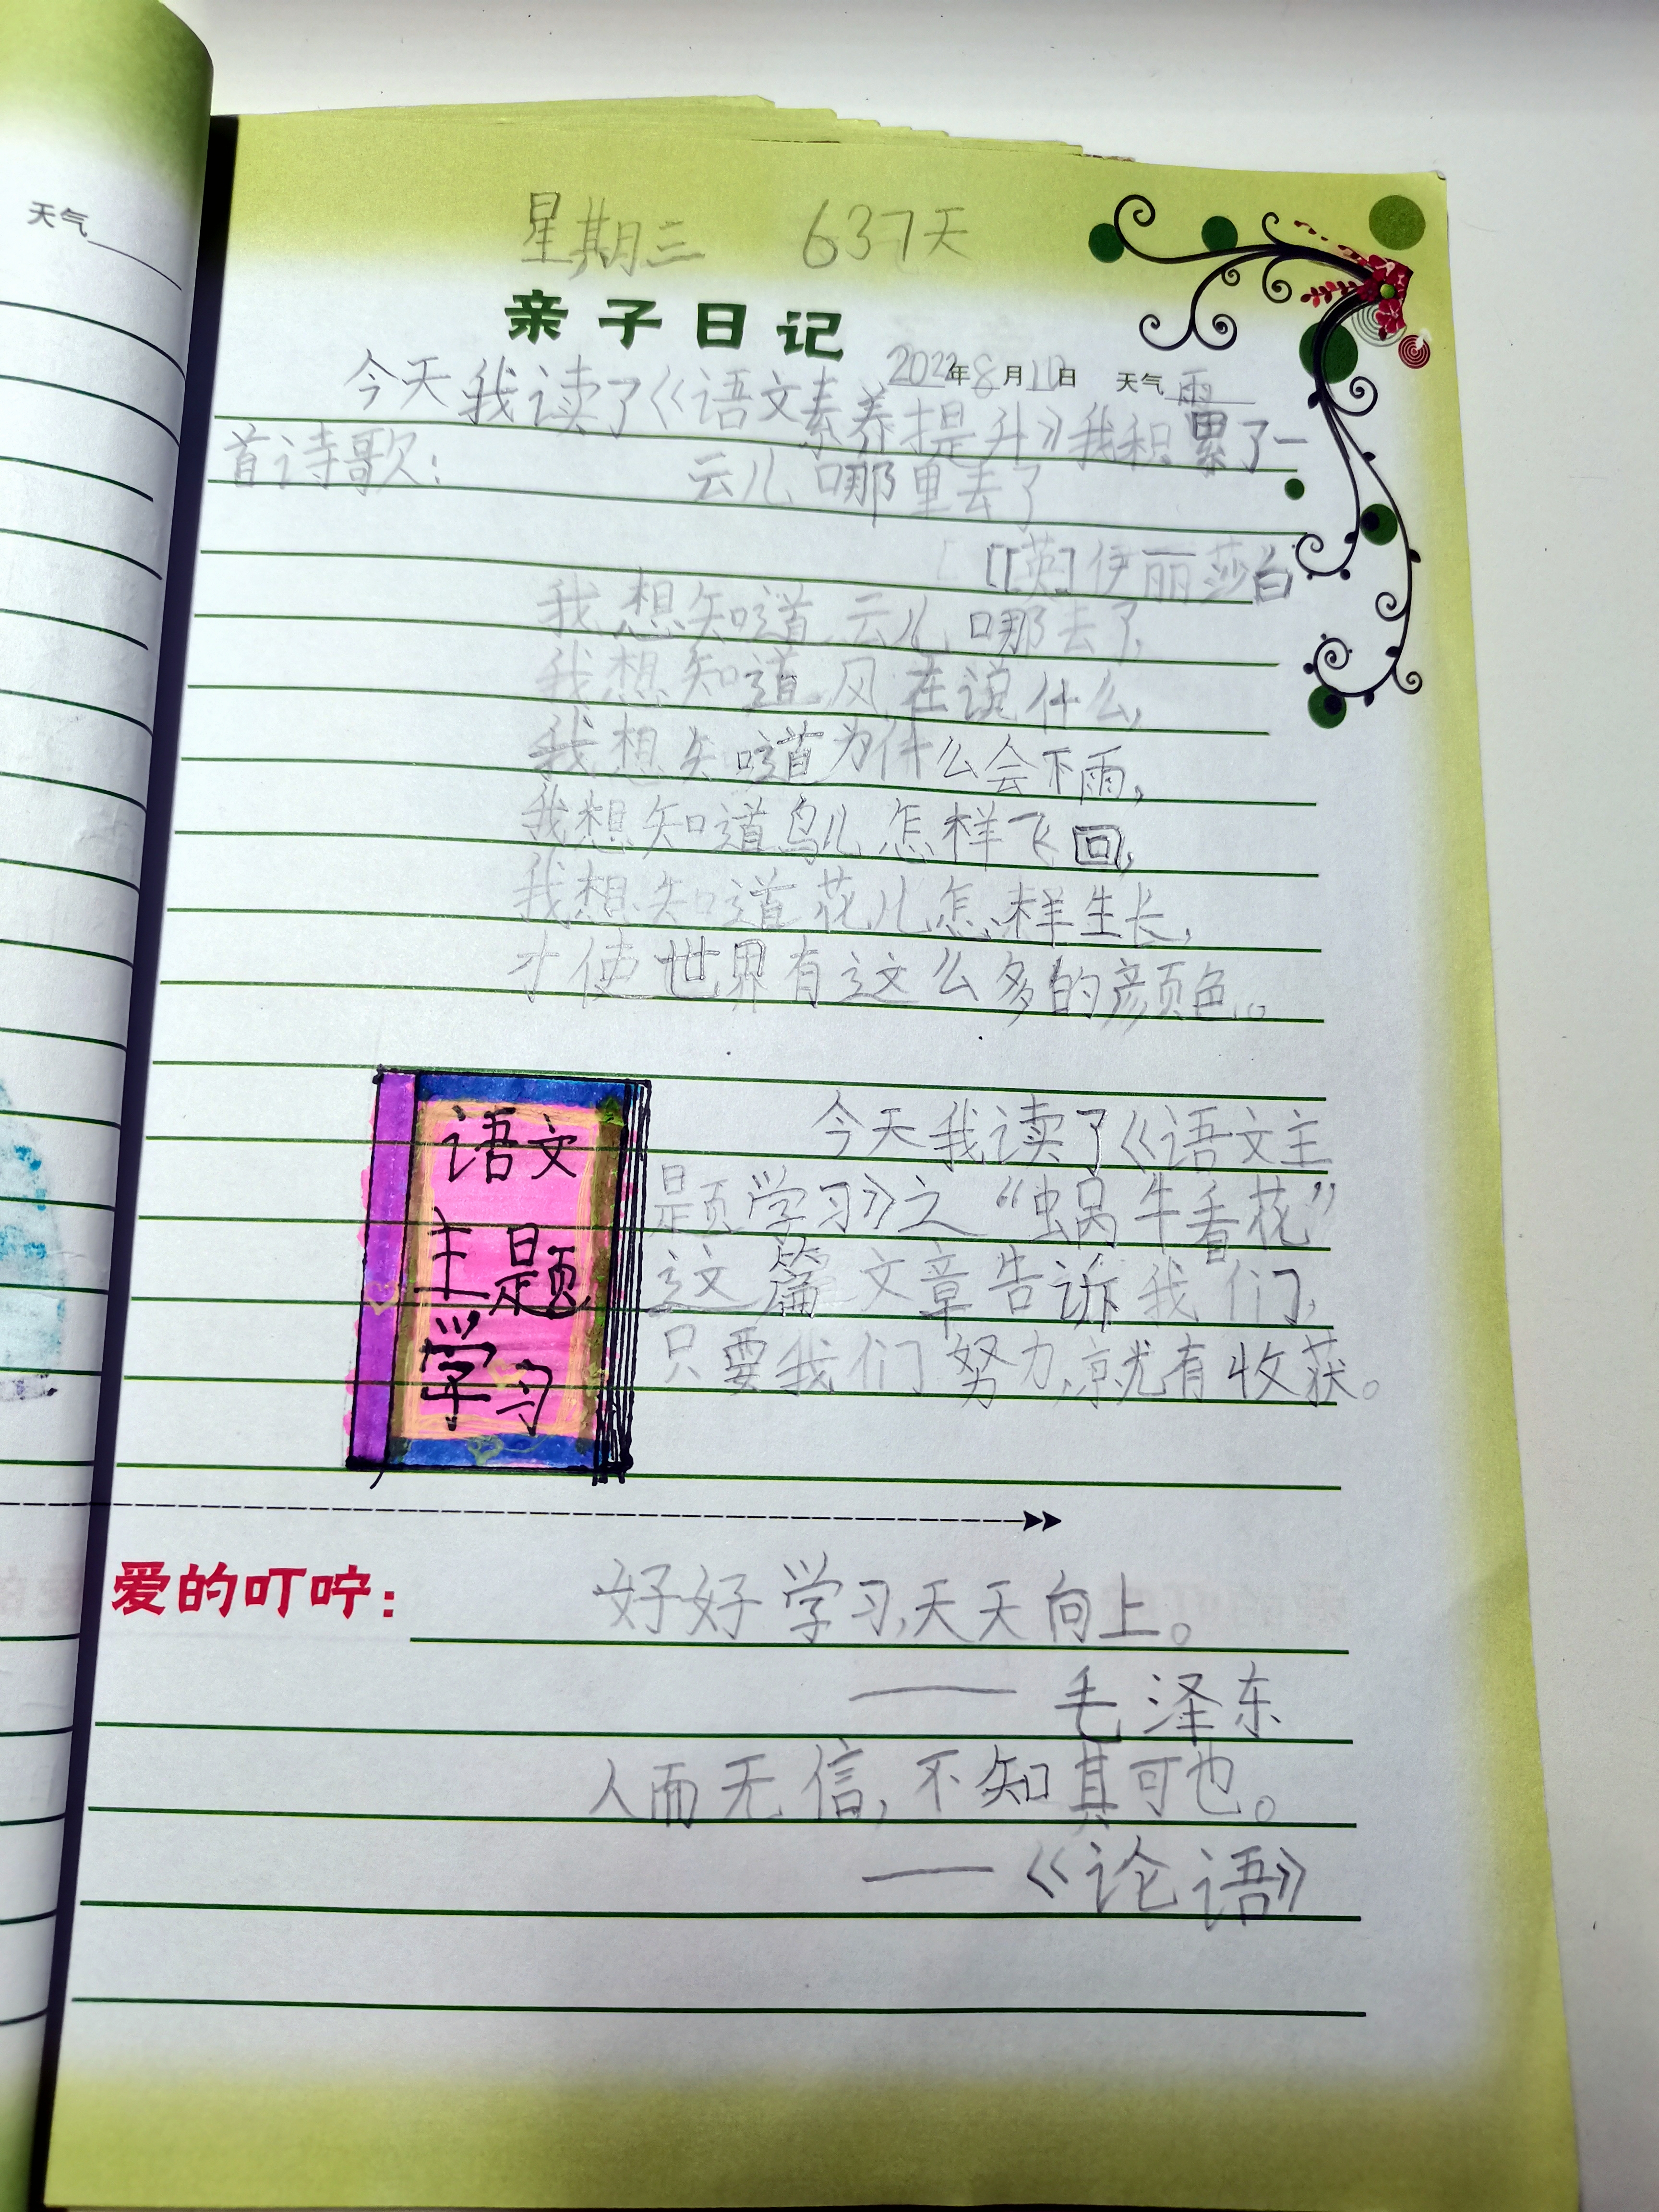 天气
星期三 637天
亲子日记
2022年8月10日 天气雨
今天我读了《语文素养提升》我积累了一
首诗歌：
云儿哪里去了
[英]伊丽莎白
我想知道云儿哪去了，
我想知道风在说什么，
我想知道为什么会下雨，
我想知道鸟儿怎样飞回，
我想知道花儿怎样生长，
才使世界有这么多的颜色。
语文
主题
学习
今天我读了《语文主
题学习》之“蜗牛看花”
这篇文章告诉我们，
只要我们努力，就有收获。
爱的叮咛：
好好学习，天天向上。
——毛泽东
人而无信，不知其可也。
——《论语》